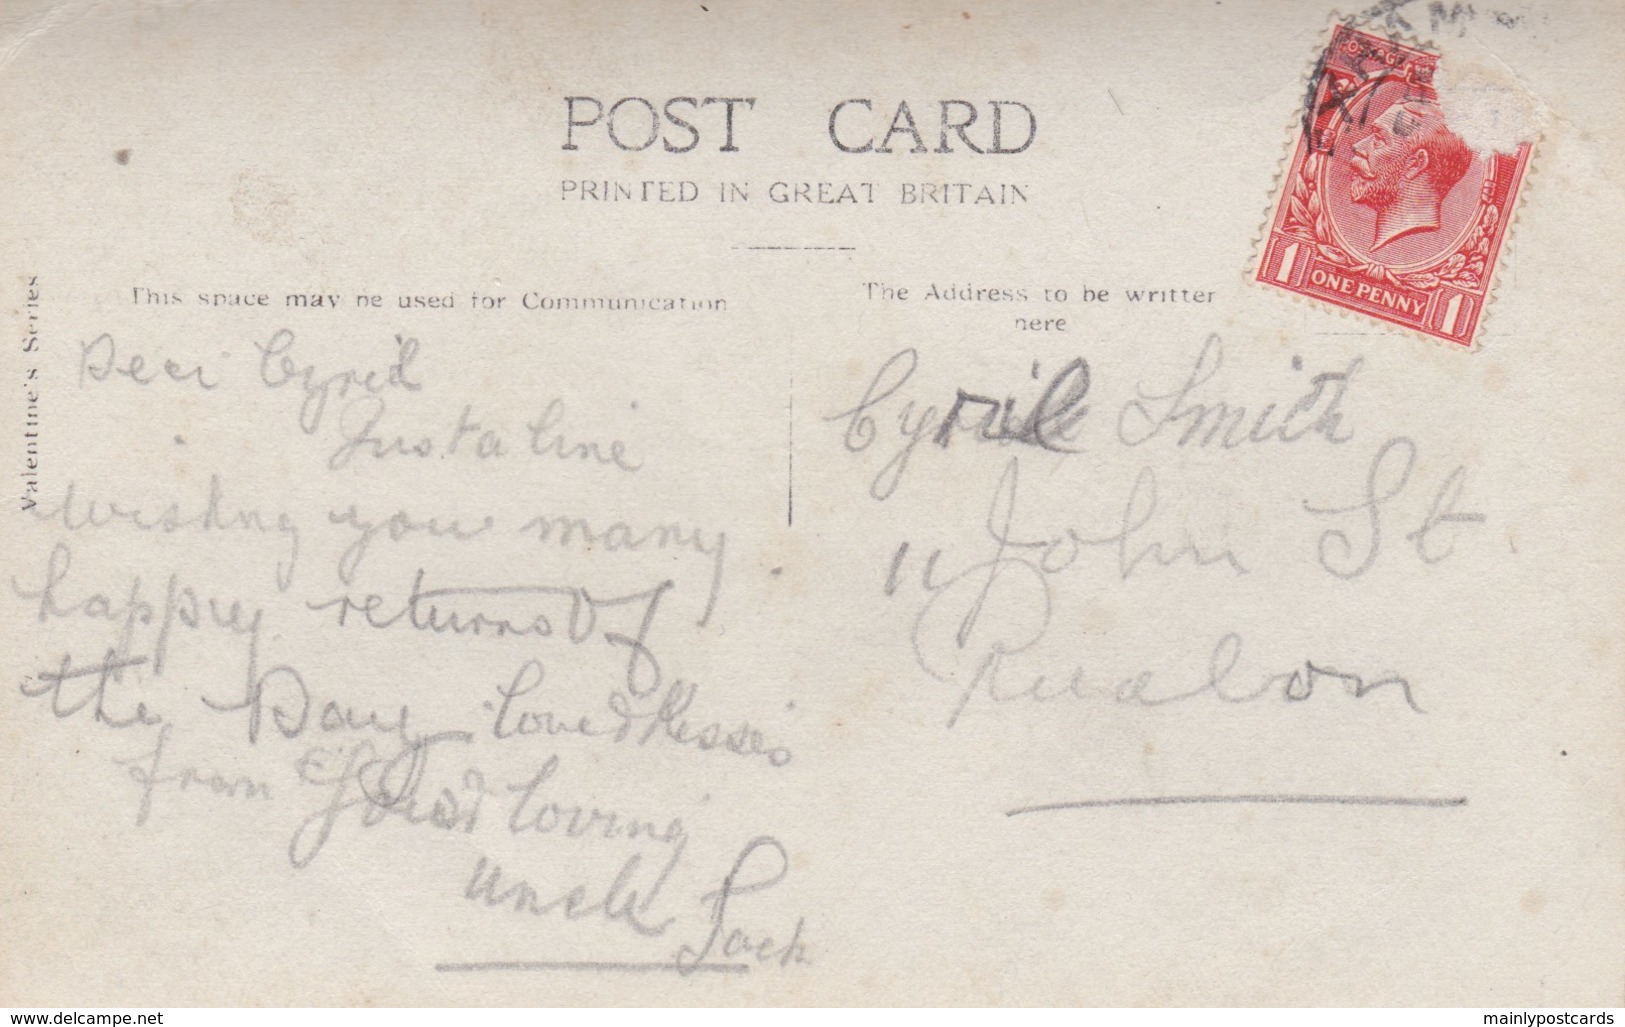 POST CARD
PRINTED IN GREAT BRITAIN
Valentine's Series
This space may be used for Communication
The Address to be written
here
POSTAGE
1 ONE PENNY 1
Dear Cyril
Just a line
wishing you many
happy returns of
the Day love & Kisses
from loving
uncle Jack
Cyril Smith
11 John St
Ruabon
www.delcampe.net
mainlypostcards